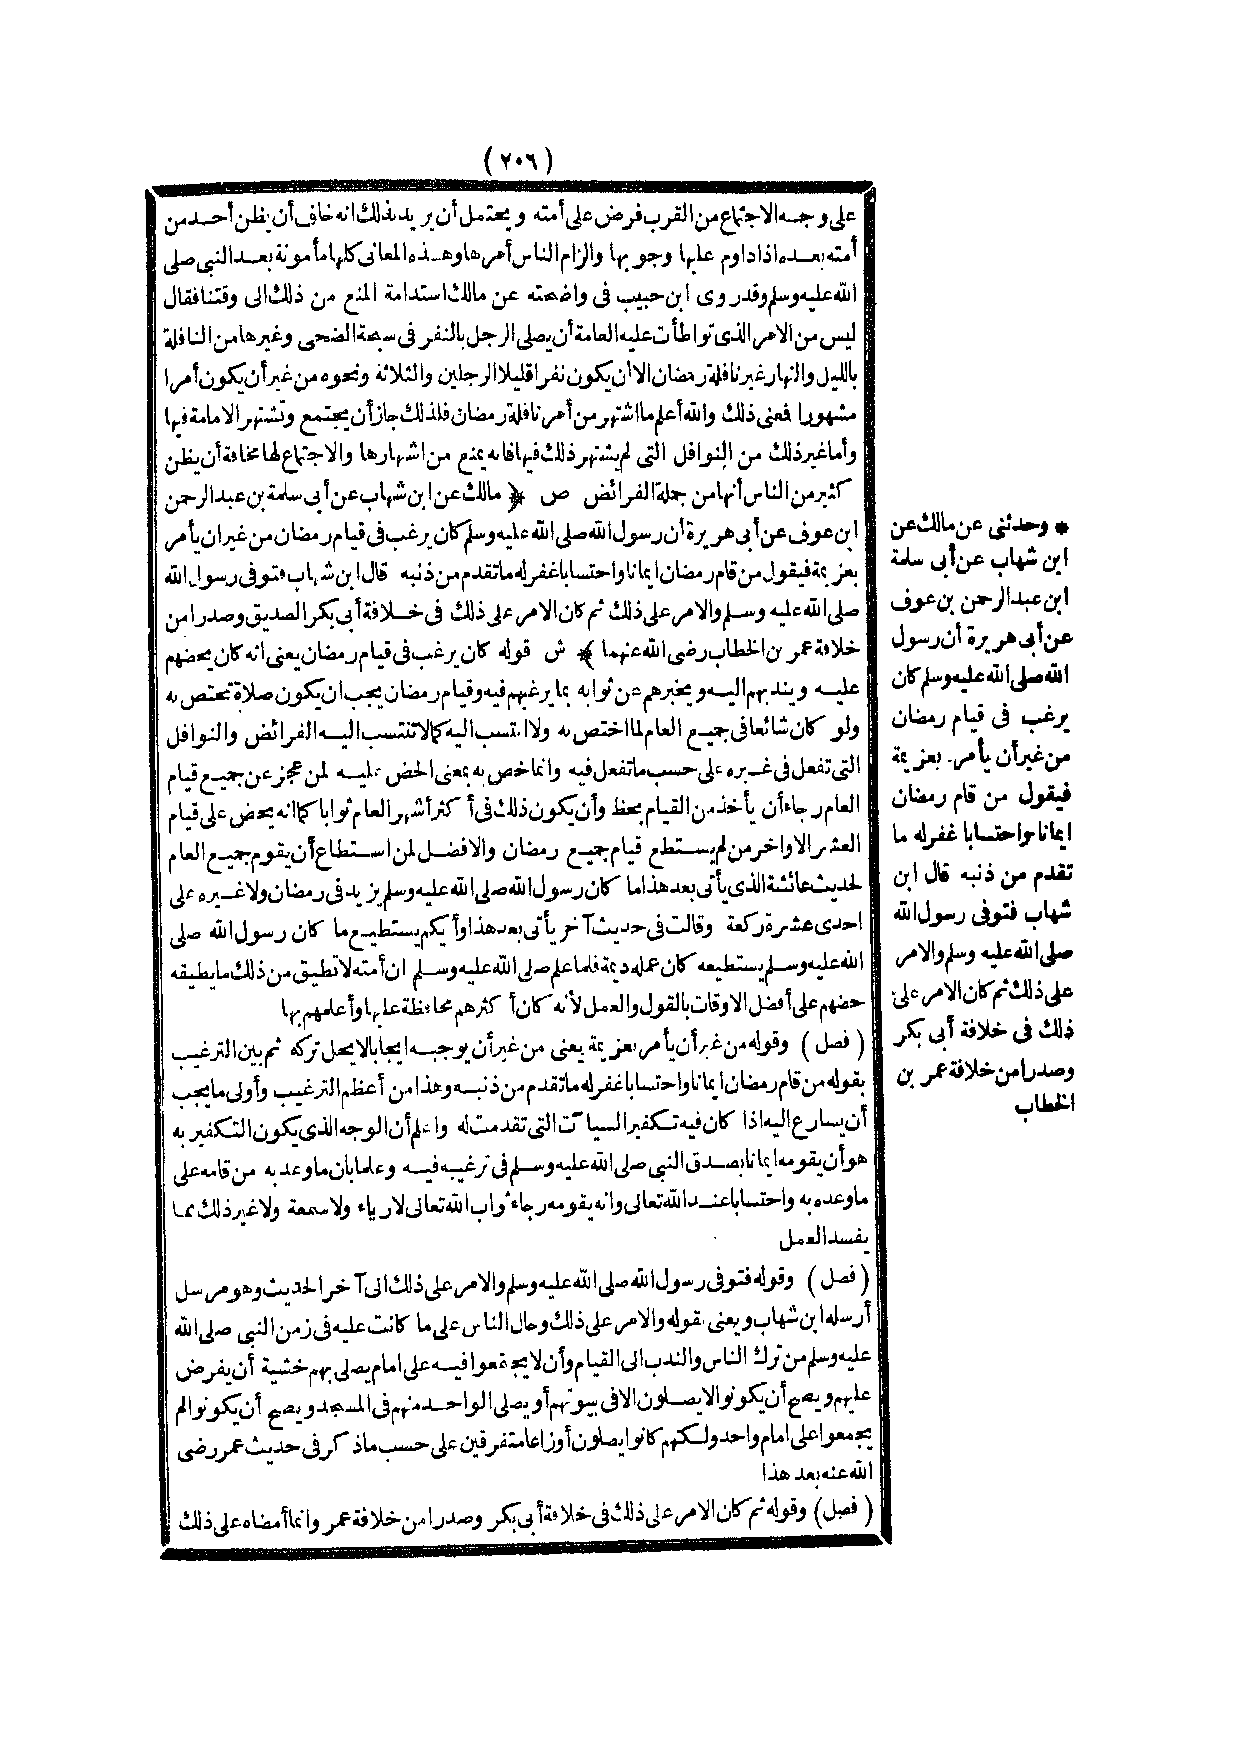 (٢٠٦)
على وجه الاجتماع من القرب فرض على أمته ويحتمل أن يريد بذلك انه خاف أن يظن أحد من
أمته بعده اذا داوم عليها وجوبها والزام الناس أمرها وهذه المعانى كلها مأمونة بعد النبي صلى
الله عليه وسلم وقدر وى ابن حبيب فى واضحته عن مالك استدامة المنع من ذلك الى وقتنا فقال
ليس من الامر الذى تواطأت عليه العامة أن يصلى الرجل بالنفر فى سبحة الضحى وغيرها من النافلة
بالليل والنهار غير نافلة رمضان الا أن يكون نفرا قليلا الرجلين والثلاثة ونحوه من غير أن يكون أمرا
مشهورا فمعنى ذلك والله أعلم ما اشتهر من أمر نافلة رمضان فلذلك جاز أن يجتمع وتشتهر الامامة فيها
وأما غير ذلك من النوافل التى لم يشتهر ذلك فيها فانه يمنع من اشهارها والاجتماع لها مخافة أن يظن
كثير من الناس أنها من جملة الفرائض ص ﴿ مالك عن ابن شهاب عن أبى سلمة بن عبد الرحمن
ابن عوف عن أبى هريرة أن رسول الله صلى الله عليه وسلم كان يرغب فى قيام رمضان من غير ان يأمر
بعزيمة فيقول من قام رمضان ايمانا واحتسابا غفر له ما تقدم من ذنبه قال ابن شهاب فتوفى رسول الله
صلى الله عليه وسلم والامر على ذلك ثم كان الامر على ذلك فى خلافة أبى بكر الصديق وصدرا من
خلافة عمر بن الخطاب رضى الله عنهما ﴾ ش قوله كان يرغب فى قيام رمضان يعنى انه كان يحضهم
عليه ويندبهم اليه ويخبرهم عن ثوابه بما يرغبهم فيه وقيام رمضان يجب ان يكون صلاة تختص به
ولو كان شائعا فى جميع العام لما اختص به ولا انتسب اليه كما لا تنتسب اليه الفرائض والنوافل
التى تفعل فى غيره على حسب ما تفعل فيه وانما خص به بمعنى الحض عليه لمن عجز عن جميع قيام
العام رجاء أن يأخذ من القيام بحظ وأن يكون ذلك فى أكثر أشهر العام ثوابا كما انه يحض على قيام
العشر الاواخر من لم يستطع قيام جميع رمضان والافضل لمن استطاع أن يقوم جميع العام
لحديث عائشة الذى يأتى بعد هذا ما كان رسول الله صلى الله عليه وسلم يزيد فى رمضان ولا غيره على
احدى عشرة ركعة وقالت فى حديث آخر يأتى بعد هذا وأيكم يستطيع ما كان رسول الله صلى
الله عليه وسلم يستطيعه كان عمله ديمة فلما علم صلى الله عليه وسلم ان أمته لا تطيق من ذلك ما يطيقه
حضهم على أفضل الاوقات بالقول والعمل لأنه كان أكثرهم محافظة عليها وأعلمهم بها
( فصل ) وقوله من غير أن يأمر بعزيمة يعنى من غير أن يوجبه ايجابا لا يحل تركه ثم بين الترغيب
بقوله من قام رمضان ايمانا واحتسابا غفر له ما تقدم من ذنبه وهذا من أعظم الترغيب وأولى ما يجب
أن يسارع اليه اذا كان فيه تكفير السيآت التى تقدمت له واعلم أن الوجه الذى يكون التكفير به
هو أن يقومه ايمانا بصدق النبي صلى الله عليه وسلم فى ترغيبه فيه وعلما بان ما وعد به من قامه على
ما وعده به واحتسابا عند الله تعالى وانه يقومه رجاء ثواب الله تعالى لا رياء ولا سمعة ولا غير ذلك مما
يفسد العمل
( فصل ) وقوله فتوفى رسول الله صلى الله عليه وسلم والامر على ذلك الى آخر الحديث وهو مرسل
أرسله ابن شهاب ويعنى بقوله والامر على ذلك وحال الناس على ما كانت عليه فى زمن النبي صلى الله
عليه وسلم من ترك الناس والندب الى القيام وأن لا يجمعوا فيه على امام يصلى بهم خشية أن يفرض
عليهم ويصح أن يكونوا لا يصلون الا فى بيوتهم أو يصلى الواحد منهم فى المسجد ويصح أن يكونوا لم
يجمعوا على امام واحد ولكنهم كانوا يصلون أوزاعا متفرقين على حسب ما ذكر فى حديث عمر رضى
الله عنه بعد هذا
( فصل) وقوله ثم كان الامر على ذلك فى خلافة أبى بكر وصدرا من خلافة عمر وانما أمضاه على ذلك
* وحدثنى عن مالك عن
ابن شهاب عن أبى سلمة
ابن عبد الرحمن بن عوف
عن أبى هريرة أن رسول
الله صلى الله عليه وسلم كان
يرغب فى قيام رمضان
من غير أن يأمر بعزيمة
فيقول من قام رمضان
ايمانا واحتسابا غفر له ما
تقدم من ذنبه قال ابن
شهاب فتوفى رسول الله
صلى الله عليه وسلم والامر
على ذلك ثم كان الامر على
ذلك فى خلافة أبى بكر
وصدرا من خلافة عمر بن
الخطاب